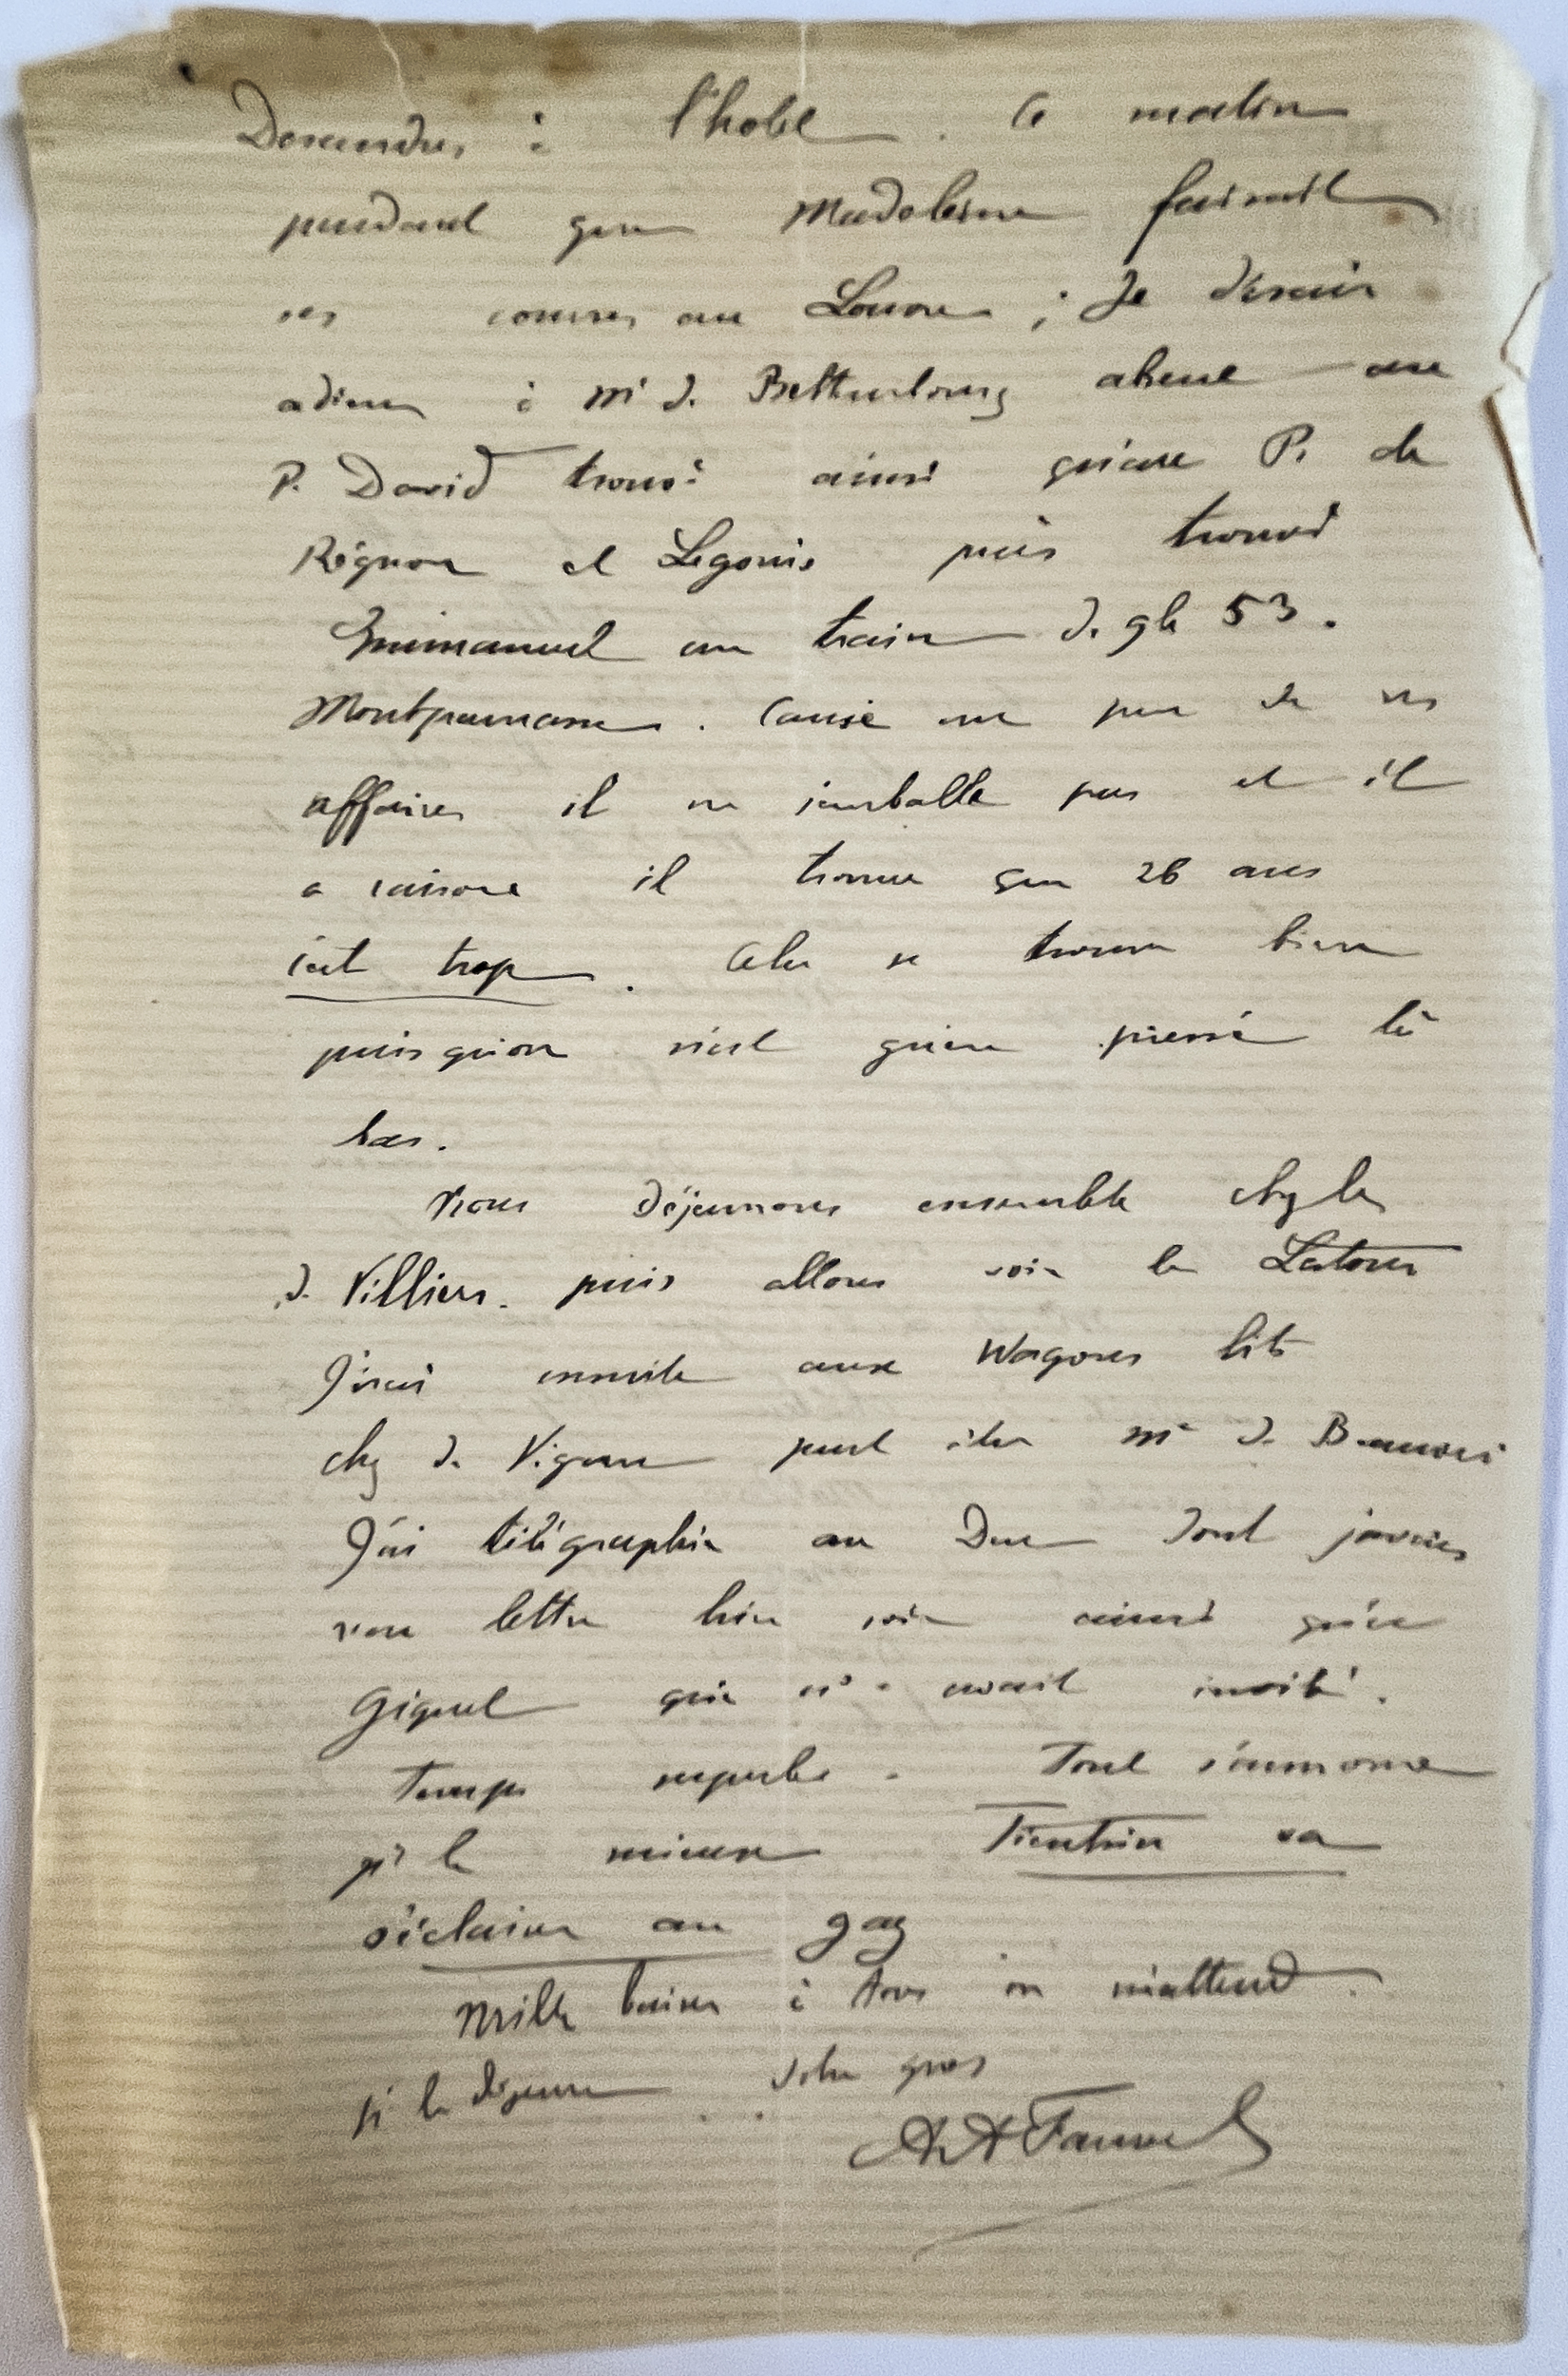 à l'hotel. Ce matin
pendant que Madeleine faisait
ses courses au Louvre ; Je disais
adieu à Mr de Bettembourg absent au
P. David trouvé ainsi qu'au P. de
Régnon et Legouis puis trouvé
Emmanuel au train de 9h 53.
Montparnasse. Causé un peu de nos
affaires il ne s'emballe pas et il
a raison il trouve que 26 ans
c'est trop. Cela se trouve bien
puisqu'on n'est guère pressé là
bas.
Nous déjeunons ensemble chez les
de Villiers. puis allons voir les Latour
J'irai ensuite aux Wagons lits
chez de Vigan peut être Mr de Beauvoir
J'ai télégraphié au Duc dont j'avais
reçu lettre hier soir ainsi que
Giquel qui m'avait invité.
Temps superbe. Tout s'annonce
pr le mieux Tientsin va
s'éclairer au gaz
Mille baisers à tous on m'attend
pr le déjeuner. Votre gros
AA Fauvel